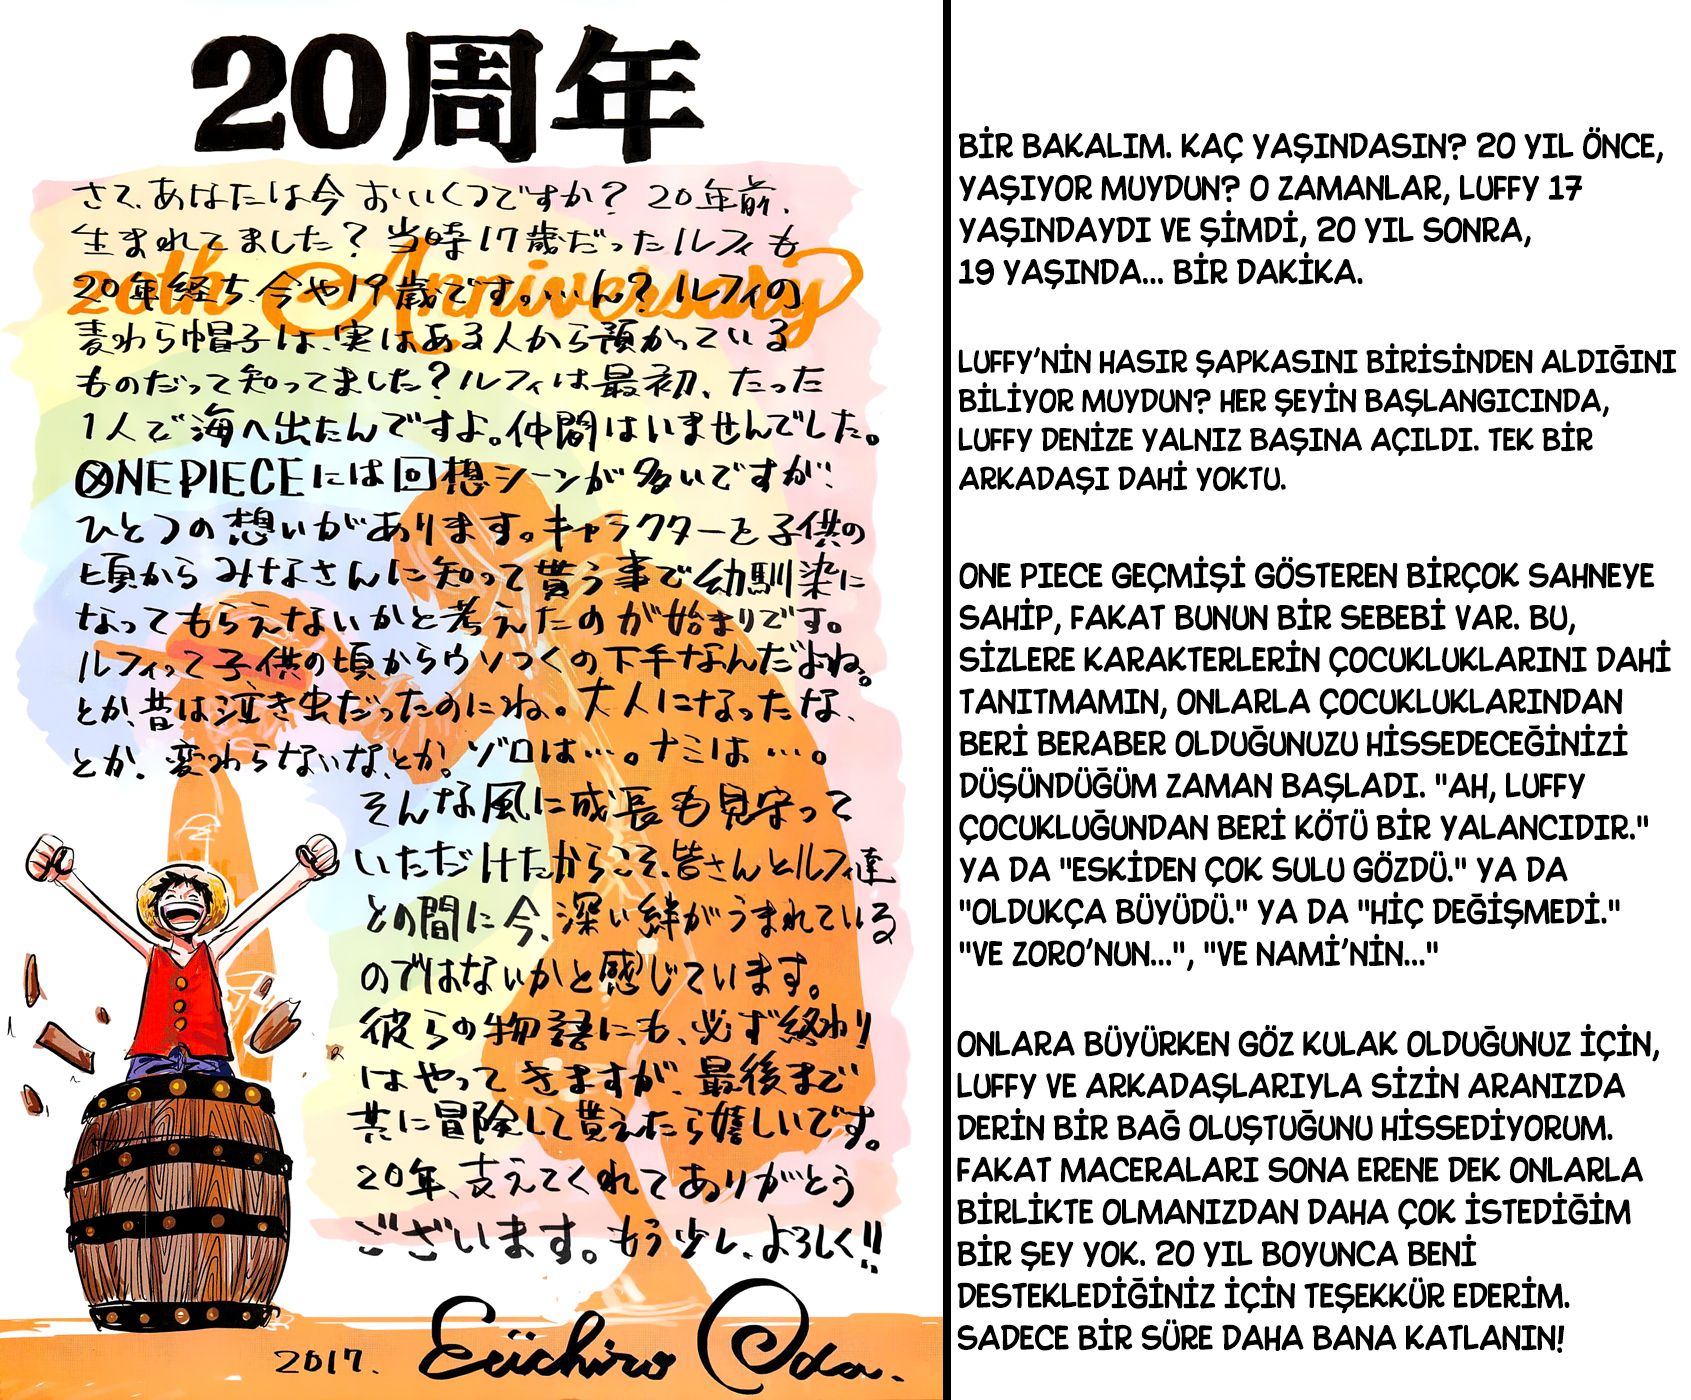 20周年
さて、あなたは今おいくつですか？20年前、
生まれてました？当時17歳だったルフィも
20th Anniversary
20年経ち、今や19歳です。…ん？ルフィの
麦わら帽子は、実はある人から預かっている
ものだって知ってました？ルフィは最初、たった
1人で海へ出たんですよ。仲間はいませんでした。
ONE PIECEには回想シーンが多いですが、
ひとつの想いがあります。キャラクターを子供の
頃からみなさんに知って貰う事で幼馴染に
なってもらえないかと考えたのが始まりです。
ルフィって子供の頃からウソつくの下手なんだよね。
とか、昔は泣き虫だったのにね。大人になったな、
とか、変わらないな、とか。ゾロは…。ナミは…。
そんな風に成長も見守って
いただけたからこそ、皆さんとルフィ達
との間に今、深い絆がうまれている
のではないかと感じています。
彼らの物語にも、必ず終わり
はやってきますが、最後まで
共に冒険して貰えたら嬉しいです。
20年、支えてくれてありがとう
ございます。もう少し、よろしく!!
2017. Eiichiro Oda.
BİR BAKALIM. KAÇ YAŞINDASIN? 20 YIL ÖNCE,
YAŞIYOR MUYDUN? O ZAMANLAR, LUFFY 17
YAŞINDAYDI VE ŞİMDİ, 20 YIL SONRA,
19 YAŞINDA... BİR DAKİKA.
LUFFY'NİN HASIR ŞAPKASINI BİRİSİNDEN ALDIĞINI
BİLİYOR MUYDUN? HER ŞEYİN BAŞLANGICINDA,
LUFFY DENİZE YALNIZ BAŞINA AÇILDI. TEK BİR
ARKADAŞI DAHİ YOKTU.
ONE PIECE GEÇMİŞİ GÖSTEREN BİRÇOK SAHNEYE
SAHİP, FAKAT BUNUN BİR SEBEBİ VAR. BU,
SİZLERE KARAKTERLERİN ÇOCUKLUKLARINI DAHİ
TANITMAMIN, ONLARLA ÇOCUKLUKLARINDAN
BERİ BERABER OLDUĞUNUZU HİSSEDECEĞİNİZİ
DÜŞÜNDÜĞÜM ZAMAN BAŞLADI. "AH, LUFFY
ÇOCUKLUĞUNDAN BERİ KÖTÜ BİR YALANCIDIR."
YA DA "ESKİDEN ÇOK SULU GÖZDÜ." YA DA
"OLDUKÇA BÜYÜDÜ." YA DA "HİÇ DEĞİŞMEDİ."
"VE ZORO'NUN...", "VE NAMİ'NİN..."
ONLARA BÜYÜRKEN GÖZ KULAK OLDUĞUNUZ İÇİN,
LUFFY VE ARKADAŞLARIYLA SİZİN ARANIZDA
DERİN BİR BAĞ OLUŞTUĞUNU HİSSEDİYORUM.
FAKAT MACERALARI SONA ERENE DEK ONLARLA
BİRLİKTE OLMANIZDAN DAHA ÇOK İSTEDİĞİM
BİR ŞEY YOK. 20 YIL BOYUNCA BENİ
DESTEKLEDİĞİNİZ İÇİN TEŞEKKÜR EDERİM.
SADECE BİR SÜRE DAHA BANA KATLANIN!